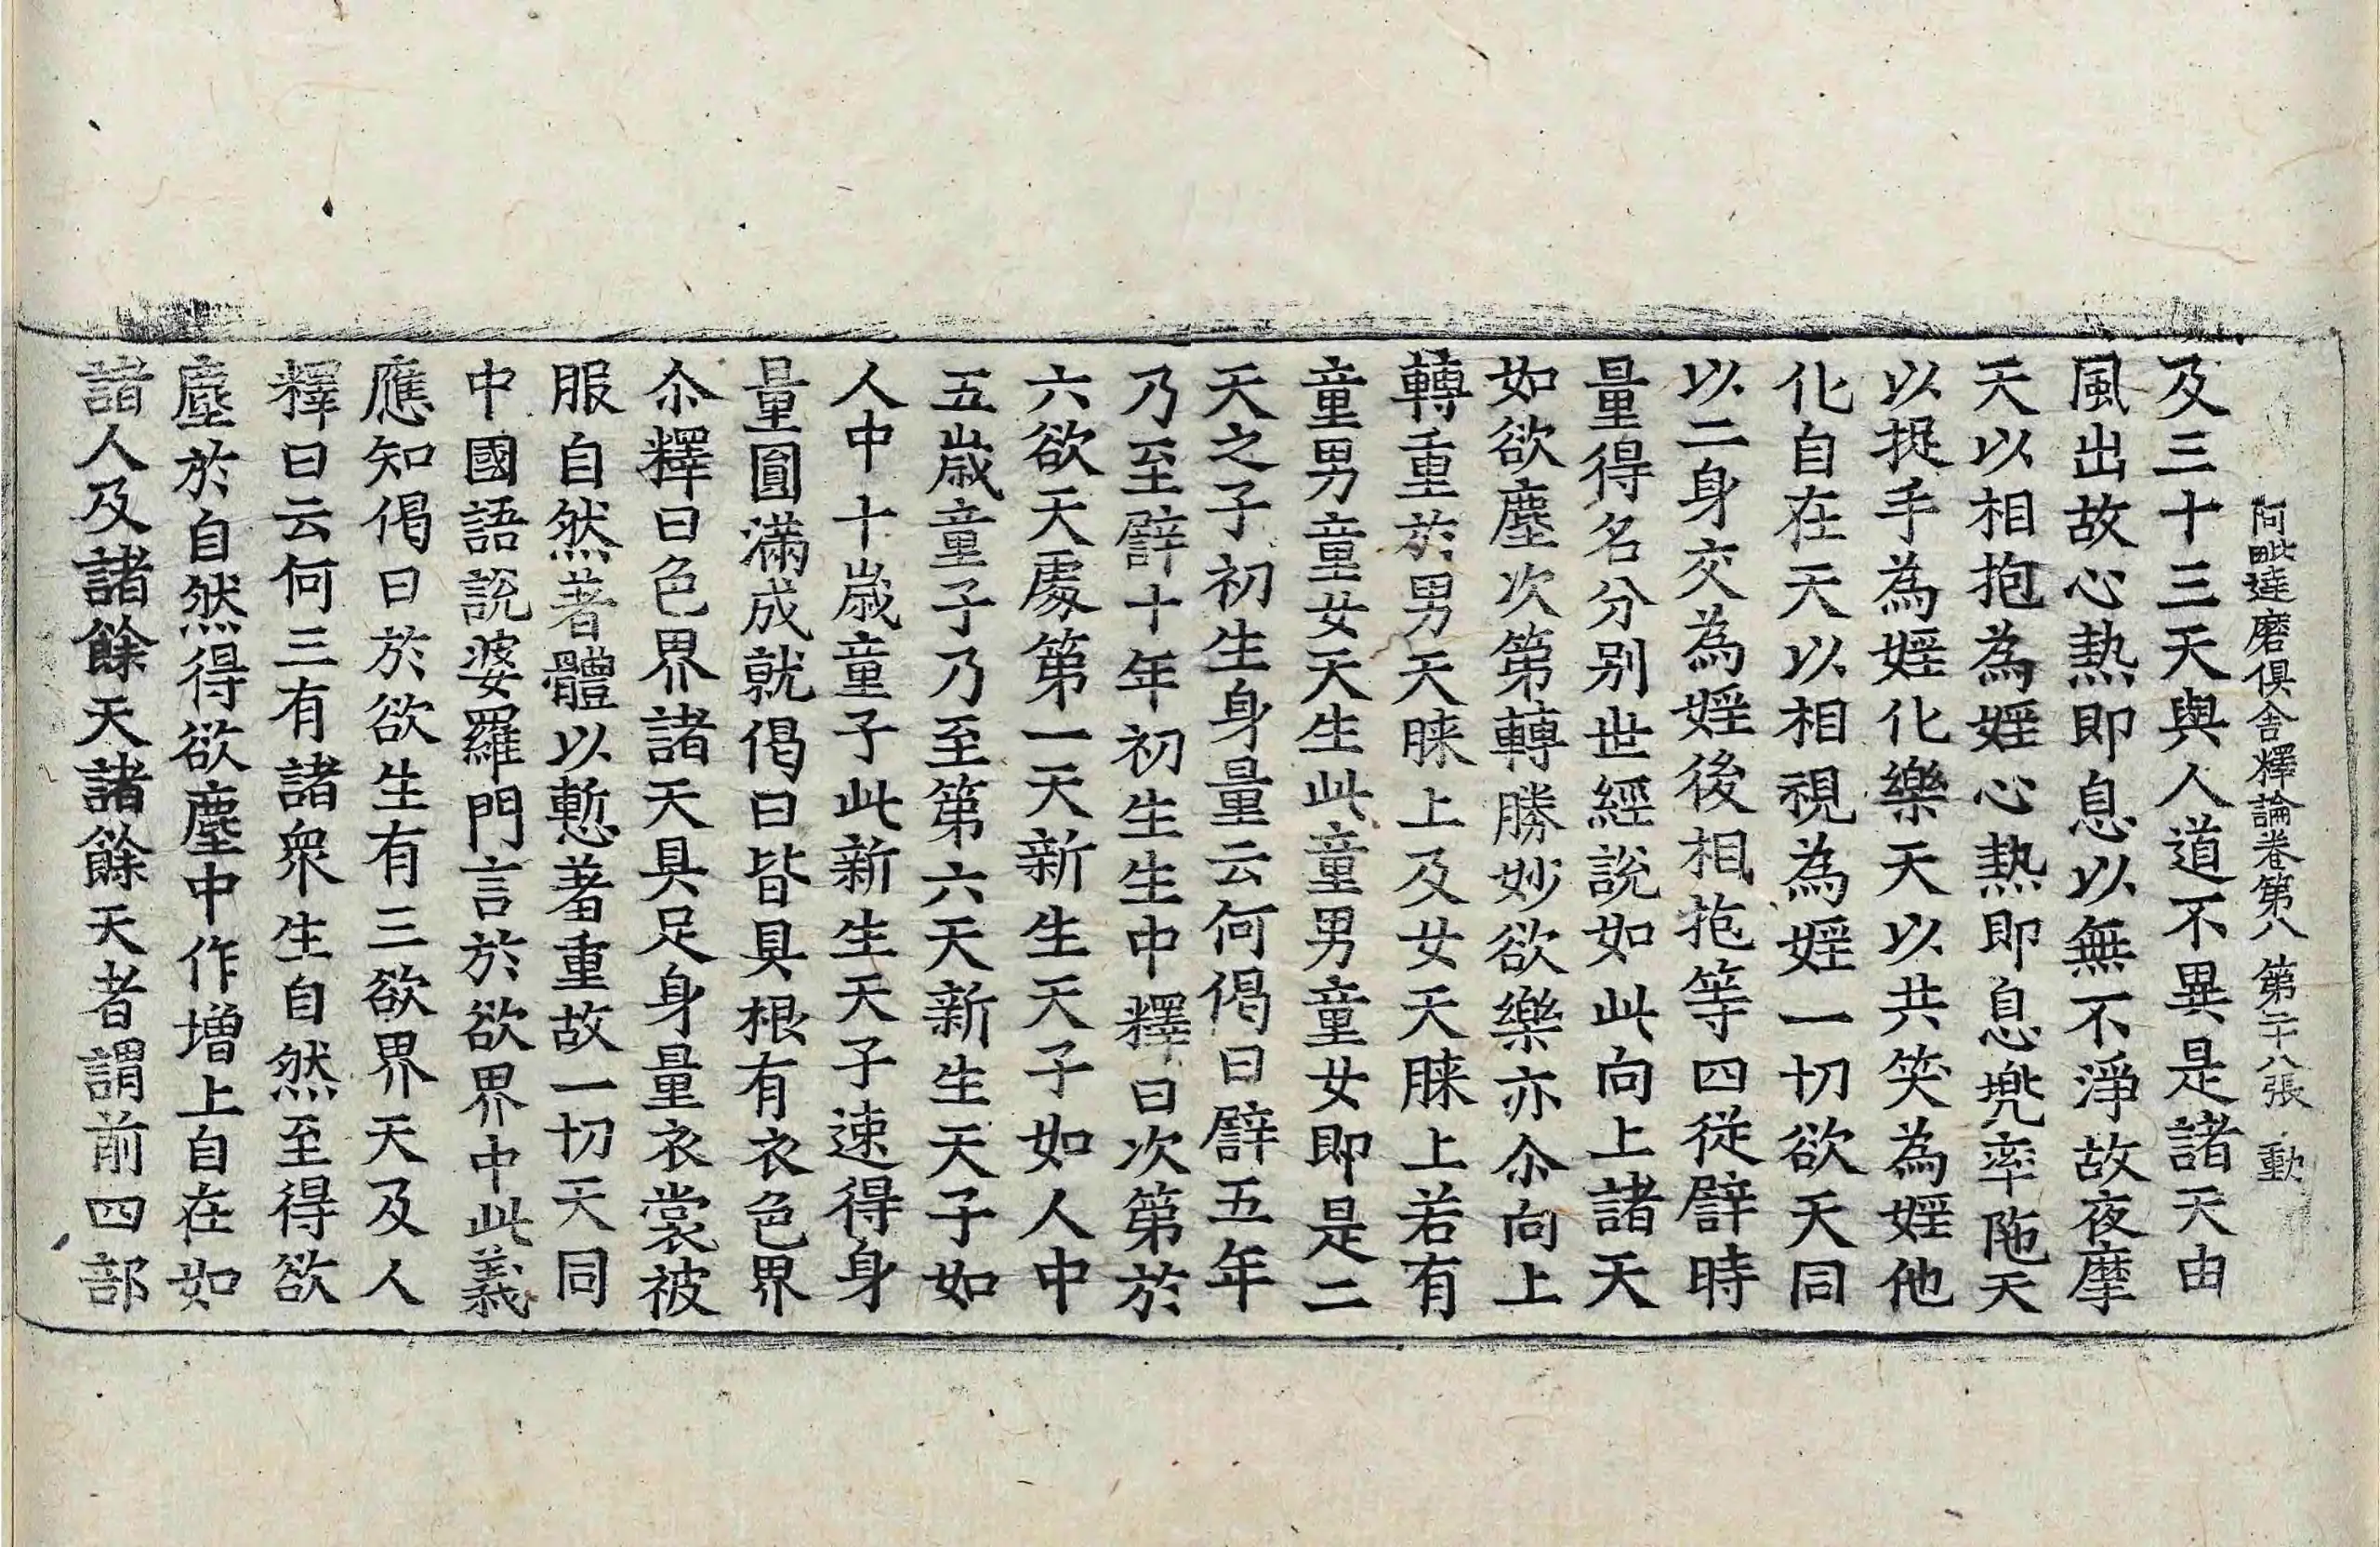 阿毗達磨俱舍釋論卷第八 第二十八張 動
及三十三天與人道不異是諸天由
風出故心熱即息以無不淨故夜摩
天以相抱為婬心熱即息兠率陁天
以捉手為婬化樂天以共笑為婬他
化自在天以相視為婬一切欲天同
以二身交為婬後相抱等四從譬時
量得名分别世經說如此向上諸天
如欲塵次第轉勝妙欲樂亦尒向上
轉重於男天䏶上及女天䏶上若有
童男童女天生此童男童女即是二
天之子初生身量云何偈曰譬五年
乃至譬十年初生生中釋曰次第於
六欲天處第一天新生天子如人中
五歳童子乃至第六天新生天子如
人中十歳童子此新生天子速得身
量圓滿成就偈曰皆具根有衣色界
尒釋曰色界諸天具足身量衣裳被
服自然著體以慙羞重故一切天同
中國語說婆羅門言於欲界中此義
應知偈曰於欲生有三欲界天及人
釋曰云何三有諸衆生自然至得欲
塵於自然得欲塵中作增上自在如
諸人及諸餘天諸餘天者謂前四部